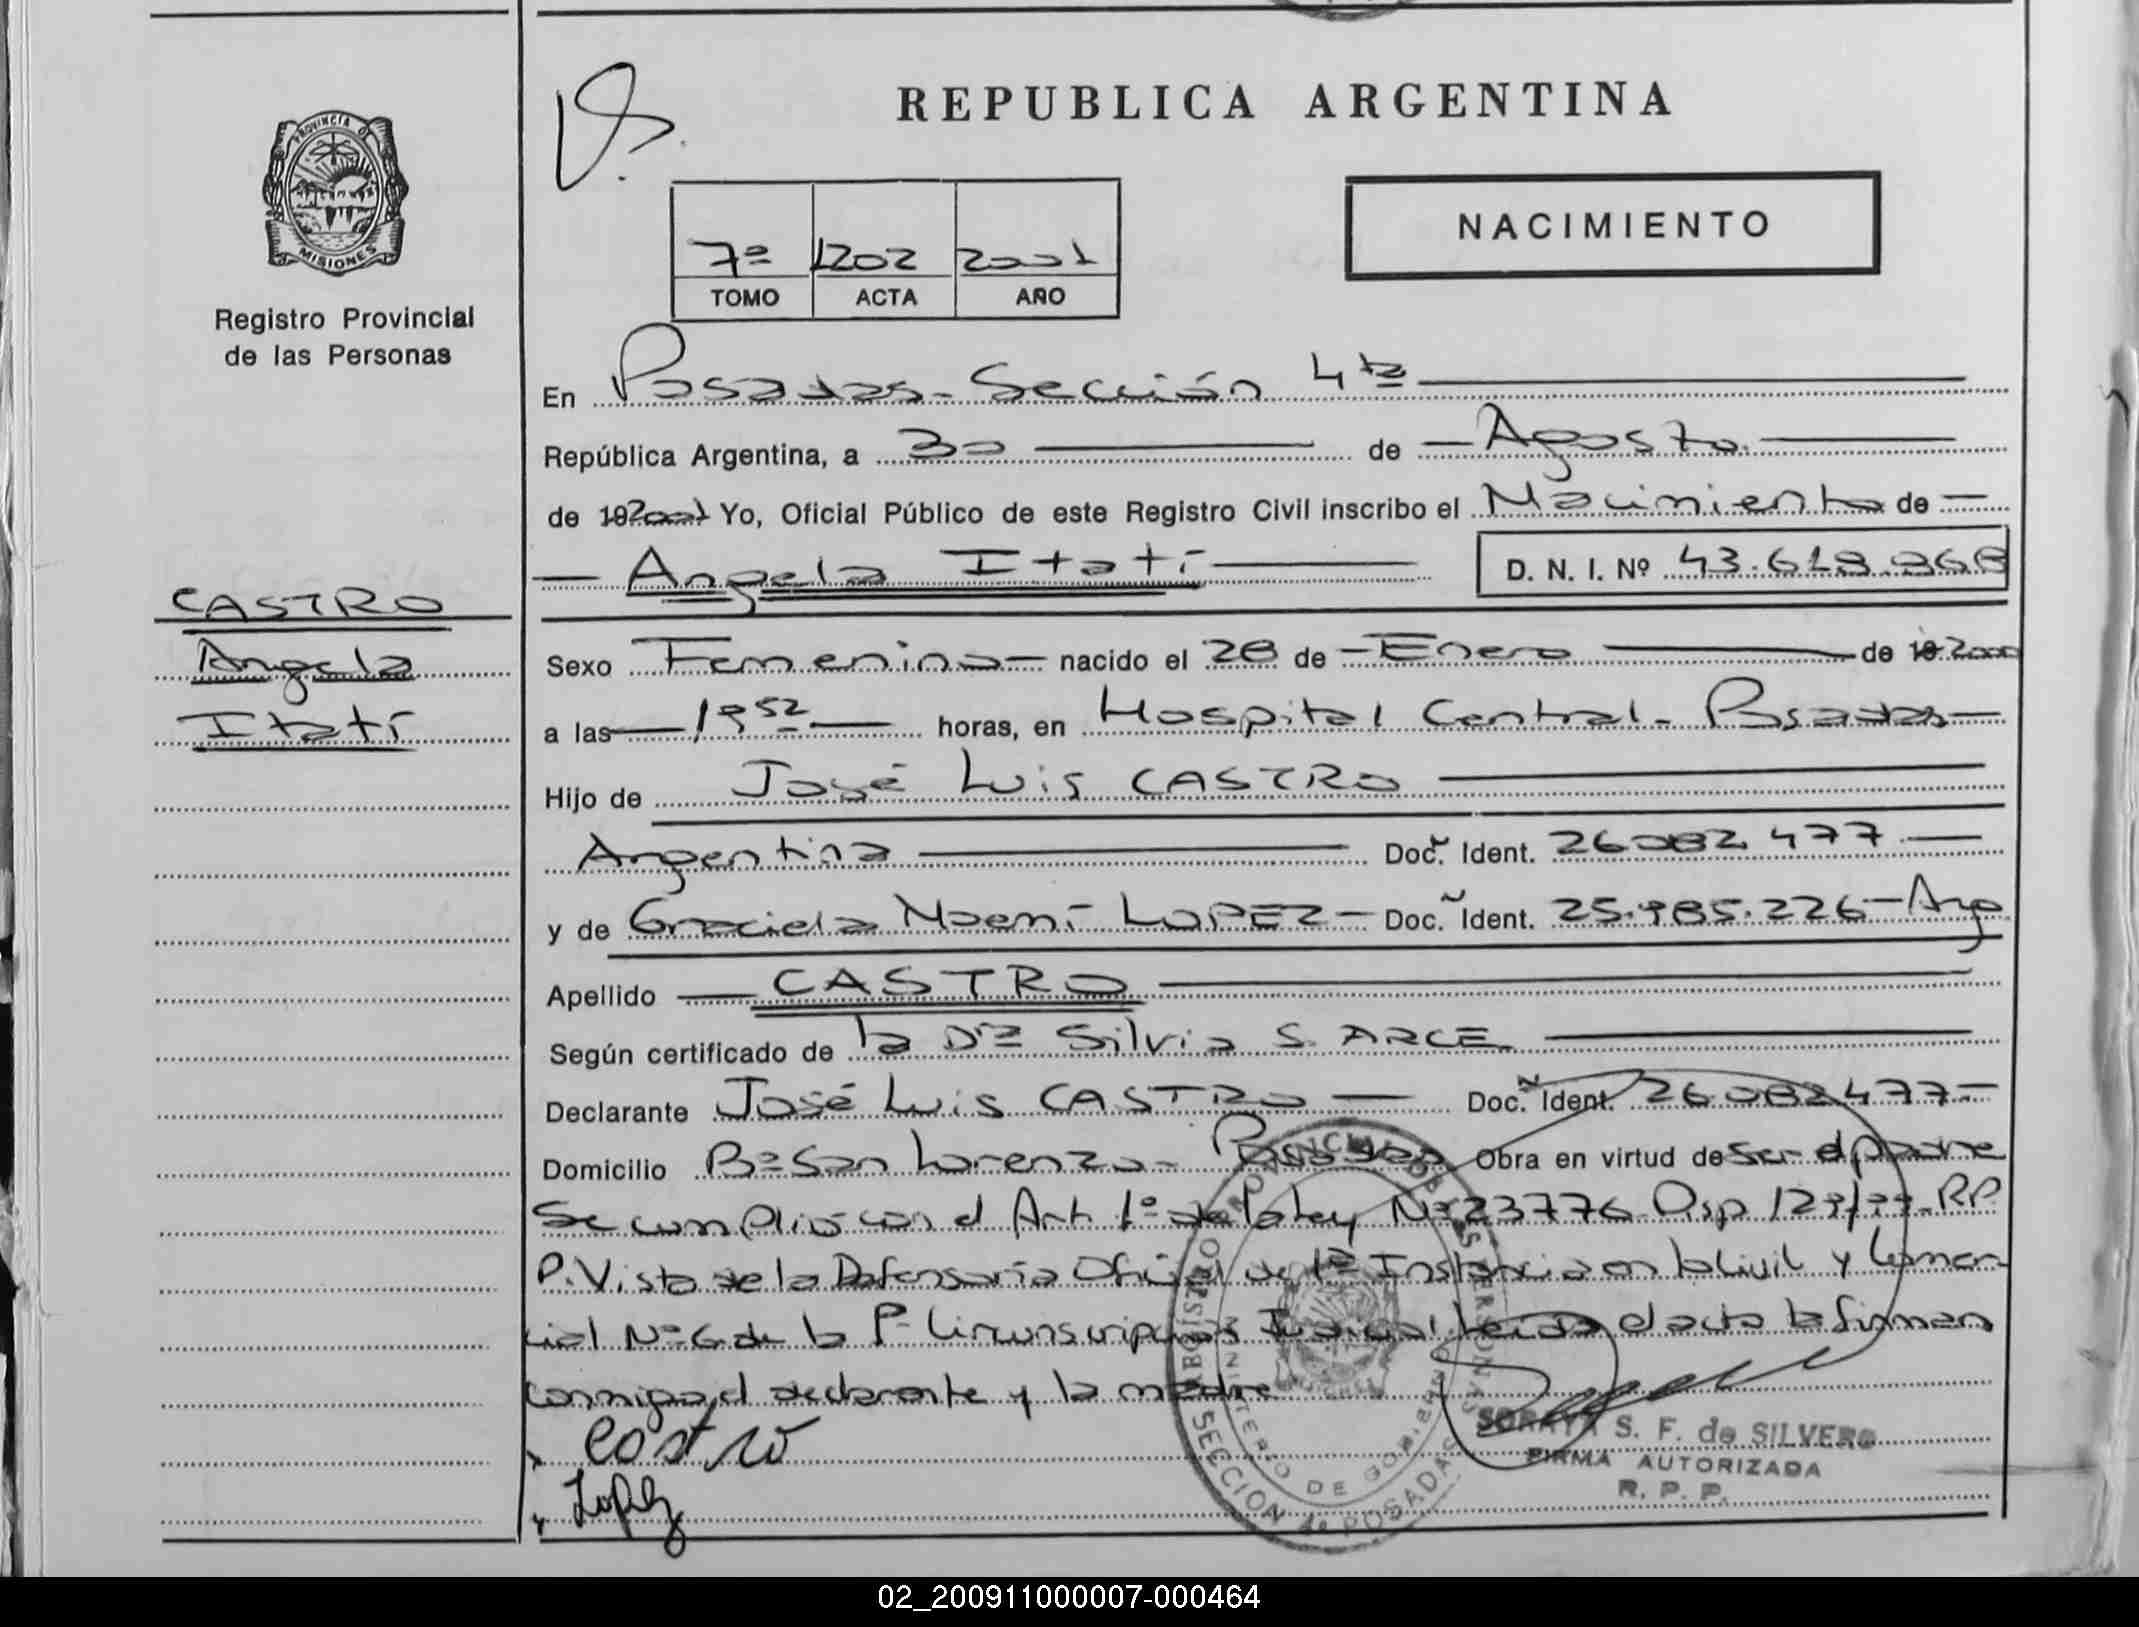 REPUBLICA ARGENTINA
PROVINCIA DE
MISIONES
Registro Provincial
de las Personas
7º 1202 2001
TOMO ACTA AÑO
NACIMIENTO
En Posadas - Sección 4ta
República Argentina, a 30 de Agosto
de 192001 Yo, Oficial Público de este Registro Civil inscribo el Nacimiento de
Angela Itatí D. N. I. Nº
CASTRO
Angela
Itatí
Sexo Femenino nacido el 28 de Enero de 19 2000
a las 19 52 horas, en Hospital Central - Posadas
Hijo de José Luis CASTRO
Argentina Doc. Ident. 26082477
y de Graciela Noemí LOPEZ Doc. Ident. 25.985.226 - Arg
Apellido CASTRO
Según certificado de la Dra Silvia S. ARCE
Declarante José Luis CASTRO Doc. Ident. 26082477
Domicilio Bº San Lorenzo - Posadas Obra en virtud de ser el padre
Se cumplió con el Art. 1º de la Ley Nº 23776 Disp R.P.
P. Vista de la Defensoría Oficial de 1ª Instancia en lo Civil y Comer-
cial Nº 6 de la Circunscripción Judicial. Leída el acta la firman
conmigo, el declarante y la madre
Castro
Lopez
REGISTRO PROVINCIAL DE LAS PERSONAS
MINISTERIO DE GOBIERNO
SECCION 4a POSADAS
SORAYA S. F. de SILVERO
FIRMA AUTORIZADA
R. P. P.
02_200911000007-000464